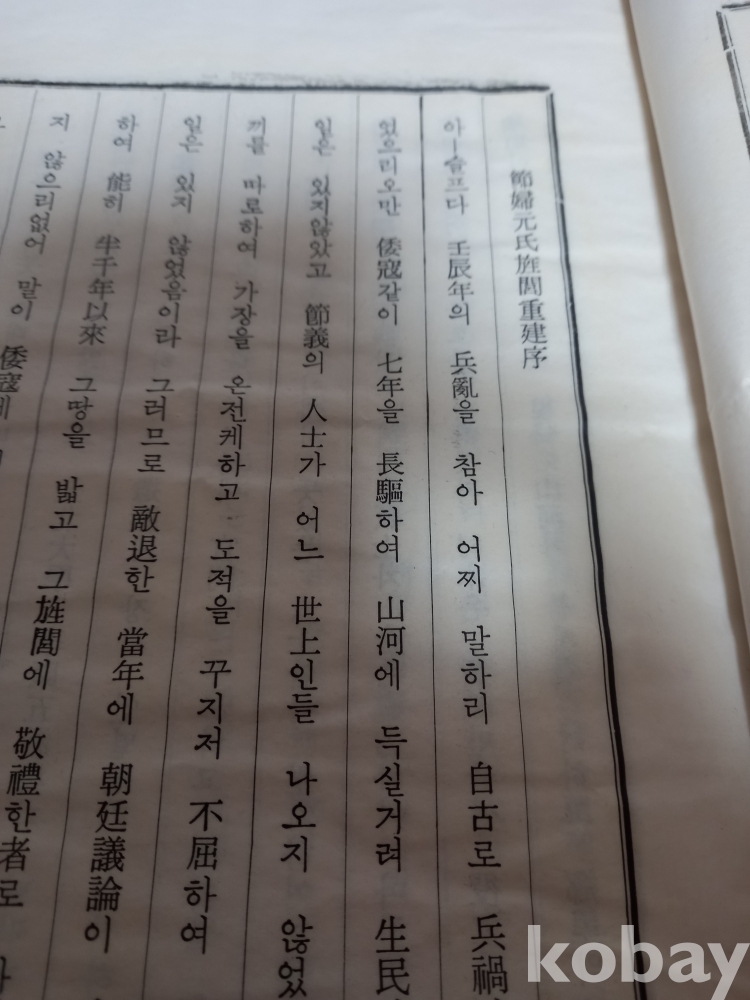 節婦元氏旌閭重建序
아ー슬프다 壬辰年의 兵亂을 참아 어찌 말하리 自古로 兵禍
있으리오만 倭寇같이 七年을 長驅하여 山河에 득실거려 生民
일은 있지않았고 節義의 人士가 어느 世上인들 나오지 않았
끼를 따로하여 가장을 온전케하고 도적을 꾸지저 不屈하여
일은 있지 않었음이라 그러므로 敵退한 當年에 朝廷議論이
하여 能히 半千年以來 그땅을 밟고 그旌閭에 敬禮한者로
지 않으리없어 말이 倭寇에
kobay